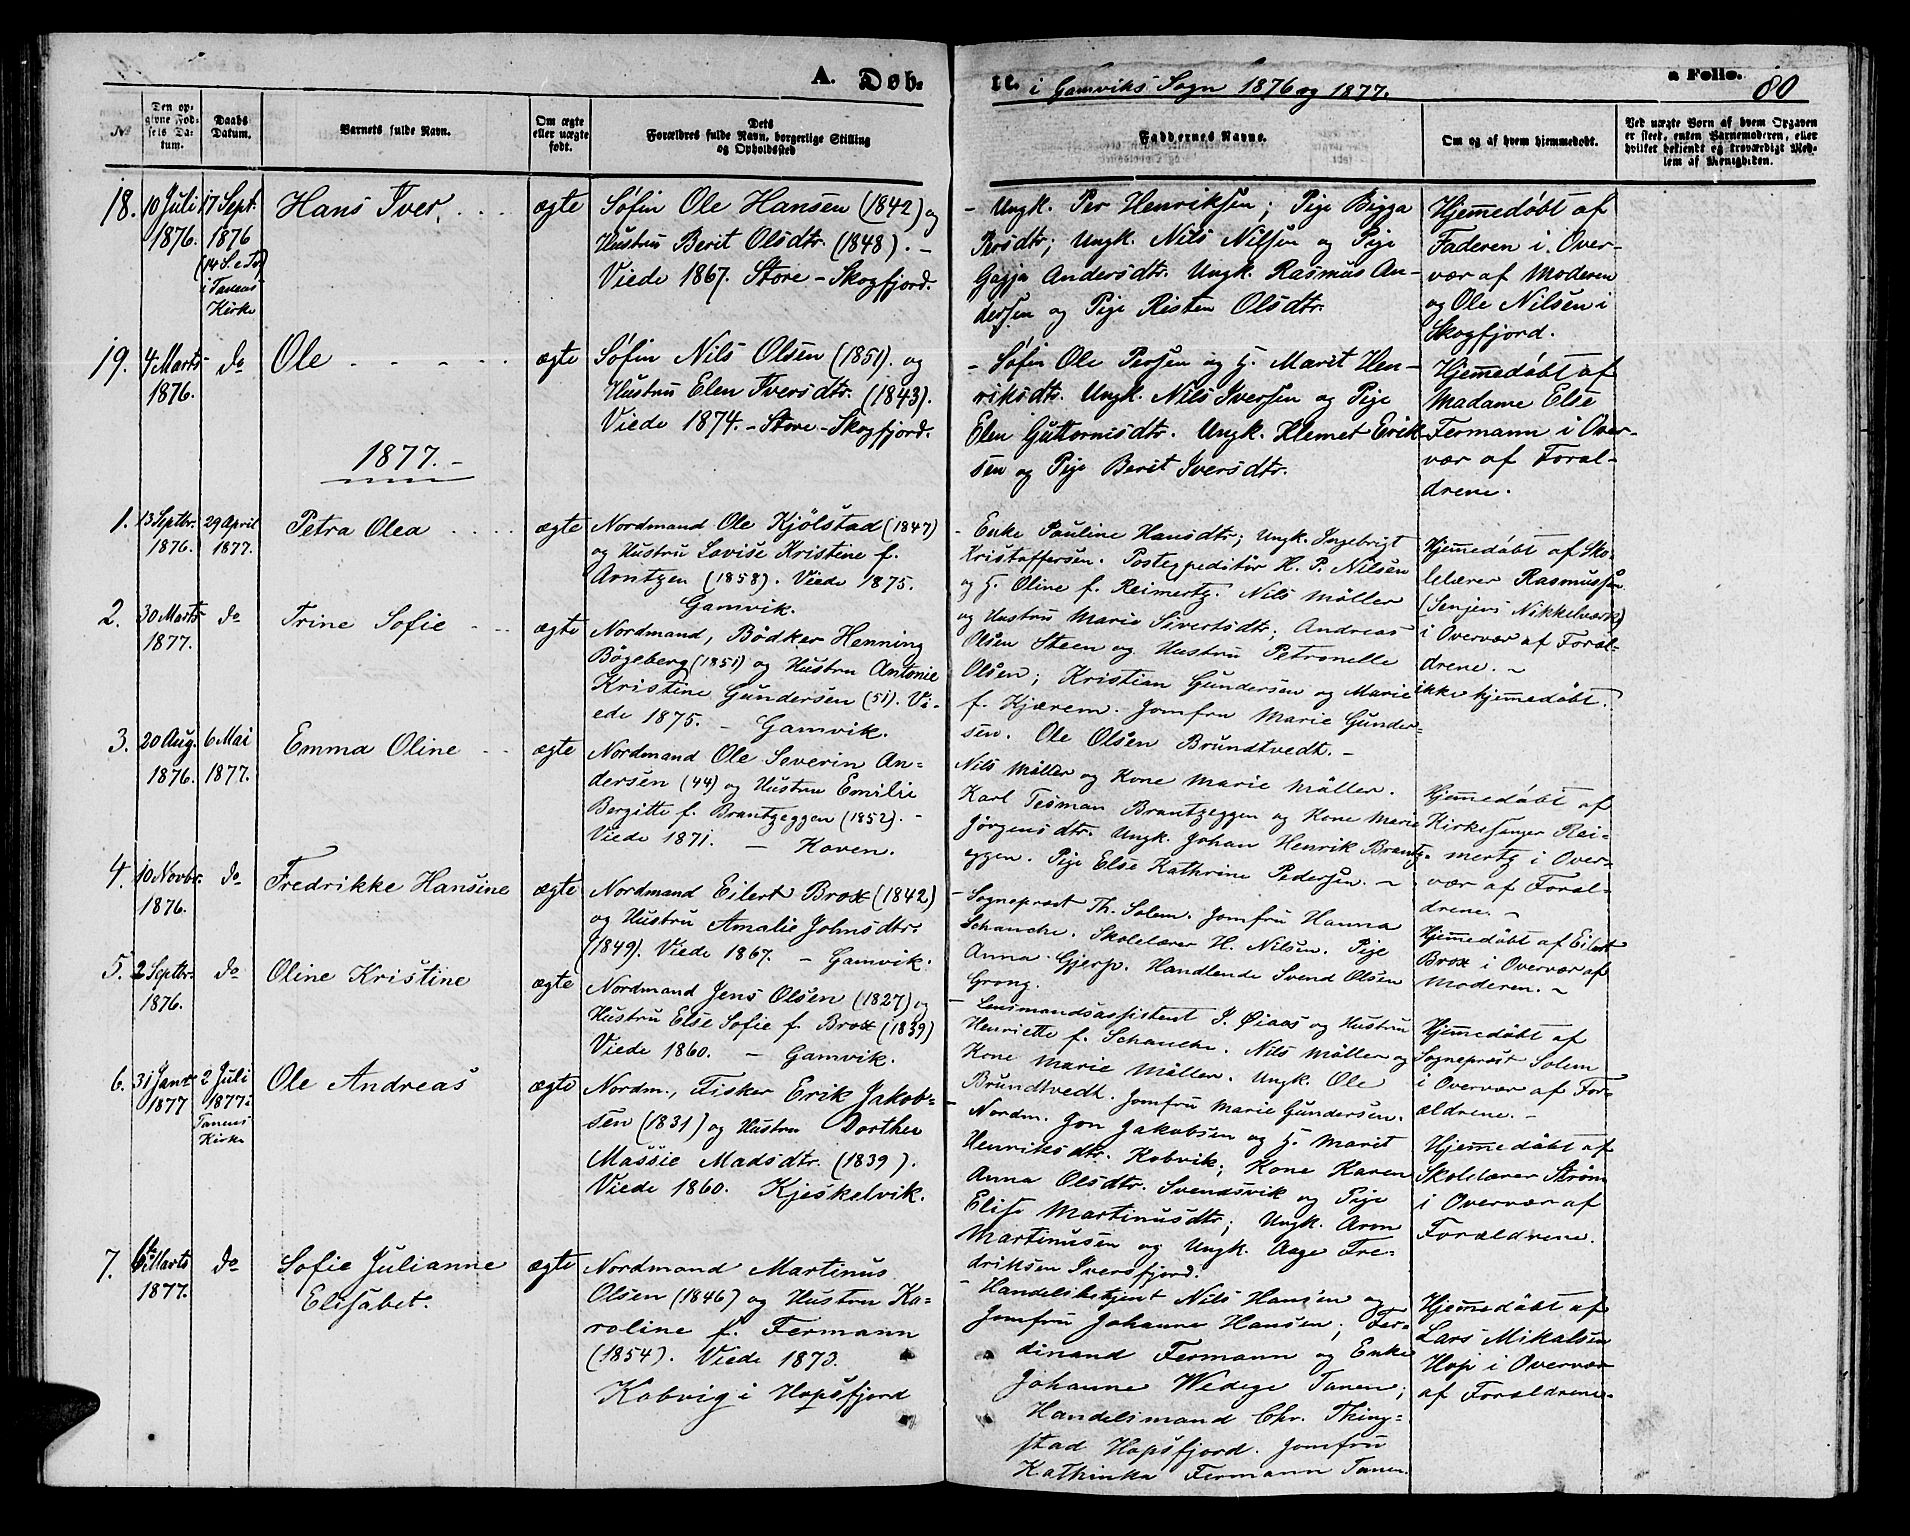 A. Døb-
te. i Gamviks Sogn 1876 og 1877.
a Folio. 80
No
Den opgivne Fødsels Datum.
Daabs Datum.
Barnets fulde Navn.
Om ægte eller uægte født.
Dets Forældres fulde Navn, borgerlige Stilling og Opholdssted
Faddernes Navne.
Om og af hvem hjemmedøbt.
Ved uægte Børn af hvem Opgaven er skeet, enten Barnemoderen, eller hvilket bekjendt og troværdigt Medlem af Menigheden.
18.
10 Juli
1876.
17 Sept.
1876
(14 S. e Tr)
i Tanens
Kirke
Hans Iver.
ægte
Søfin Ole Hansen (1842) og
Hustru Berit Olsdtr. (1848). -
Viede 1867. Store-Skogfjord.
- Ungk. Per Henriksen; Pige Bigga
Persdtr; Ungk. Nils Nilsen og Pige
Gagja Andersdtr. Ungk. Rasmus An-
dersen og Pige Risten Olsdtr.
Hjemedøbt af
Faderen i Over-
vær af Moderen
og Ole Nilsen i
Skogfjord.
19.
4 Marts
1876.
do
Ole
ægte
Søfin Nils Olsen (1851). og
Hustru Elen Iversdtr. (1843).
Viede 1874. - Store-Skogfjord.
- Søfin Ole Persen og H. Marit Hen-
riksdtr. Ungk. Nils Iversen og Pige
Elen Guttormsdtr. Ungk. Klemet Erik-
sen og Pige Berit Iversdtr.
Hjemedøbt af
Madame Else
Fermann i Over-
vær af Foræl-
drene.
1877. -
1.
13 Septbr.
1876.
29 April
1877.
Petra Olea
ægte
Nordmand Ole Kjølstad (1847)
og Hustru Lovise Kristine f.
Arntzen (1858). Viede 1875.
Gamvik.
- Enke Pauline Hansdtr; Ungk. Ingebrigt
Kristoffersen. Postexpeditør H. P. Nilsen
og H. Oline f. Reimertz. Nils Møller
og Hustru Marie Sivertsdtr; Andreas
Olsen Steen og Hustru Petronelle
Olsen; Kristian Gundersen og Marie
f. Kjærem. Jomfru Marie Gunder-
sen. Ole Olsen Brundtvedt. -
Hjemedøbt af Sko-
lelærer Rasmussen
(Senjens Nikkelværk)
i Overvær af Foræl-
drene. -
2.
30 Marts
1877.
do
Trine Sofie
ægte
Nordmand, Bødker Henning
Bøgeberg (1851) og Hustru Antonie
Kristine Gundersen (51). Vi-
ede 1875. - Gamvik.
ikke hjemedøbt.
3.
20 Aug.
1876.
6 Mai
1877.
Emma Oline
ægte
Nordmand Ole Severin An-
dersen (44) og Hustru Emilie
Bergitte f. Brantzeggen (1852). -
Viede 1871. - Koven.
Nils Møller og Kone Marie Møller.
Karl Tesman Brantzeggen og Kone Marie
Jørgensdtr. Ungk. Johan Henrik Brantz-
eggen. Pige Else Kathrine Pedersen. -
Hjemedøbt af
Kirkesanger Rei-
mertz i Over-
vær af Foræl-
drene. -
4.
10 Novbr.
1876.
do
Fredrikke Hansine
ægte
Nordmand Eilert Brox (1842)
og Hustru Amalie Johnsdtr.
(1849). Viede 1867. - Gamvik.
- Sogneprest Th. Solem. Jomfru Hanna
Schanche. Skolelærer H. Nilsen. Pige
Anna Gjerp. Handlende Svend Olsen
Grong.
Hjemedøbt af Eilert
Brox i Overvær af
Moderen. -
5.
2 Septbr.
1876.
do
Oline Kristine
ægte
Nordmand Jens Olsen (1827) og
Hustru Else Sofie f. Brox (1839)
Viede 1860. - Gamvik.
- Lensmandsassistent J. Øiaas og Hustru
Henriette f. Schanche. Nils Møller og
Kone Marie Møller. Ungk. Ole
Brundtvedt. Jomfru Marie Gundersen.
Hjemedøbt af
Sogneprest Solem
i Overvær af For-
ældrene. -
6.
31 Janr
1877
2 Juli
1877 i
Tanens
Kirke
Ole Andreas
ægte
Nordm., Fisker Erik Jakob-
sen (1831) og Hustru Dorthea
Massie Madsdtr. (1839).
Viede 1860. Kjeskelvik.
- Nordm. Jon Jakobsen og H. Marit
Henriksdtr. Kobvik; Kone Karen
Anna Olsdtr. Svendsvik og Pige
Elise Martinusdtr; Ungk. Aron
Martinusen og Ungk. Aage Fre-
driksen Iversfjord.
Hjemedøbt af
Skolelærer Strøm
i Overvær af
Forældrene.
7.
6te Marts
1877.
do
Sofie Julianne
Elisabet.
ægte
Nordmand Martinus
Olsen (1846) og Hustru Ka-
roline f. Fermann
(1854). Viede 1873.
Kobvig i Hopsfjord
- Handelsbetjent Nils Hansen og
Jomfru Johanne Hansen; Fer-
dinand Fermann og Enke
Johanne Wedege Tanen;
Handelsmand Chr. Thing-
stad Hopsfjord. Jomfru
Kathinka Fermann Tanen.
Hjemedøbt af
Lars Mikalsen
Hop i Overvær
af Forældrene.